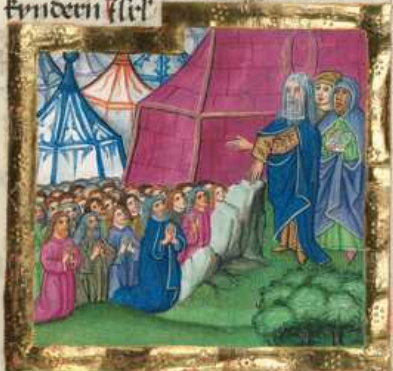 kyndern Isrl